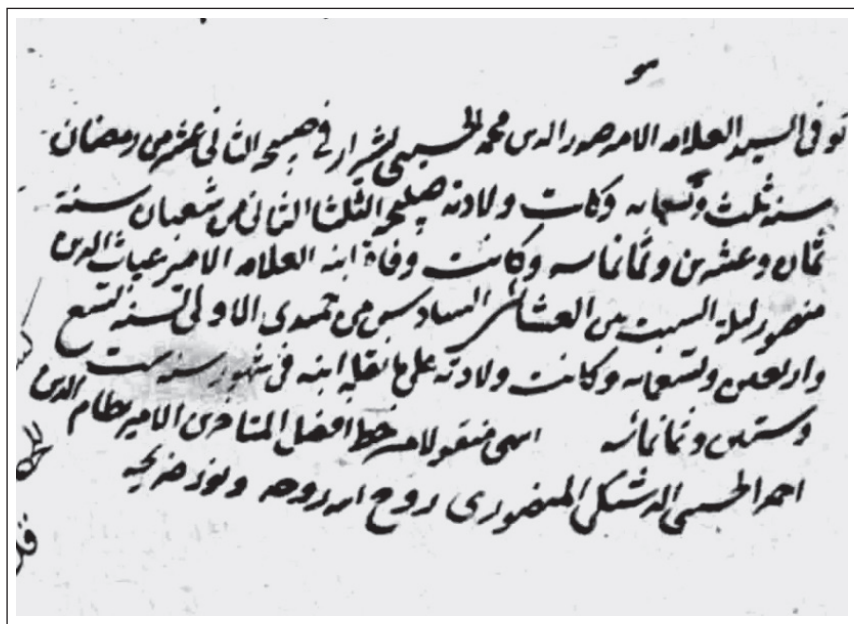 هو
توفى السيد العلامه الامير صدر الدين محمد الحسينى الشيرازى فى صبيحه الثانى عشر من رمضان
سنه ثلث وتسعمايه وكانت ولادته صبيحه الثلثا الثانى من شعبان سنة
ثمان وعشرين وثمانمايه وكانت وفاة ابنه العلامه الامير غياث الدين
منصور ليلة السبت بين العشائين السادس من جمدى الاولى لسنه تسع
واربعين وتسعمايه وكانت ولادته على ما نقله ابنه فى شهور سنه ست
وستين وثمانمائه انتهى منقولا من خط افضل المتاخرين الامير نظام الدين
احمد الحسينى الدشتكى المنصورى روح الله روحه ونور ضريحه